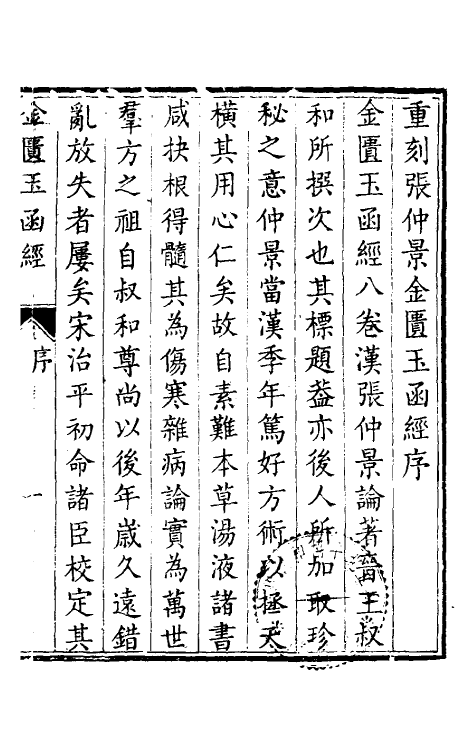 重刻張仲景金匱玉函經序
金匱玉函經八卷漢張仲景論著晉王叔
和所撰次也其標題葢亦後人所加取珍
秘之意仲景當漢季年篤好方術以拯夭
橫其用心仁矣故自素難本草湯液諸書
咸抉根得髓其為傷寒雜病論實為萬世
羣方之祖自叔和尊尚以後年歲久遠錯
亂放失者屢矣宋治平初命諸臣校定其
金匱玉函經 序 一